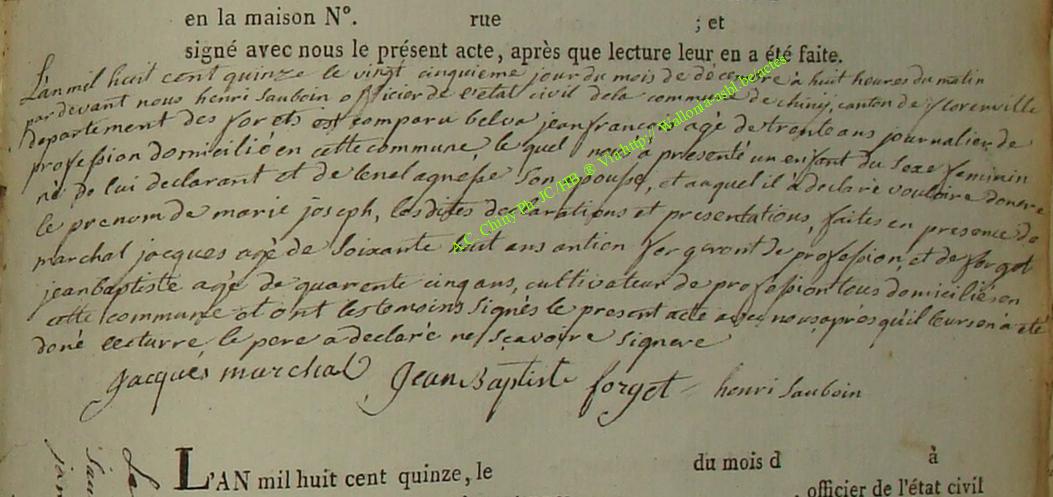 en la maison N°. rue ; et
signé avec nous le présent acte, après que lecture leur en a été faite.
L'an mil huit cent quinze le vingt cinquieme jour du mois de decembre a huit heures du matin
pardevant nous henri Sauboin officier de l'etat civil dela commune de chiny, canton de florenville
departement des forets est comparu belva jeanfrancois agé de trente ans journalier de
profession domicilié en cette commune, le quel nous a presenté un enfant du Sexe feminin
né de lui declarant et de lenel agnesse Son epouse, et auquel il a declaré vouloire donere
le prenom de marie joseph, lesdites declarations et presentations, faites en presence de
marchal jacques agé de Soixante huit ans antien forgeront de profession, et de forget
jeanbaptiste agé de quarente cinq ans, cultivateur de profession tous domiciliés en
cette commune et ont les temoins Signés le present acte avec nous apres qu'il leurs en a été
doné lecturre, le pere a declaré ne Sçavoire Signere
jacques marchal jean Baptiste forget henri Sauboin
A.C. Chiny Ph. JC/HB ® Via http://Wallonia-asbl.be/actes
L'AN mil huit cent quinze, le du mois d à
, officier de l'état civil